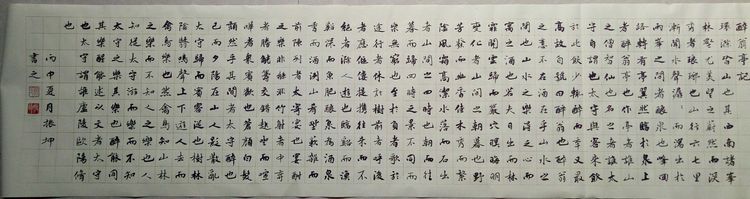 醉翁亭記
環滁皆山也其西南諸峯
林壑尤美望之蔚然而深
秀者琅琊也山行六七里
漸聞水聲潺潺而瀉出於
兩峯之間者釀泉也峰回
路轉有亭翼然臨於泉上
者醉翁亭也作亭者誰山
之僧智仙也名之者誰太
守自謂也太守與客來飲
於此飲少輒醉而年又最
高故自號曰醉翁也醉翁
之意不在酒在乎山水之
間也山水之樂得之心而
寓之酒也若夫日出而林
霏開雲歸而巖穴暝晦明
變化者山間之朝暮也野
芳發而幽香佳木秀而繁
陰風霜高潔水落而石出
者山間之四時也朝而往
暮而歸四時之景不同而
樂亦無窮也至於負者歌於
途行者休於樹前者呼後
者應傴僂提攜往來而不
絕者滁人遊也臨谿而漁
谿深而魚肥釀泉為酒泉
香而酒洌山肴野蔌雜而
前陳者太守宴也宴酣之
樂非絲非竹射者中弈
者勝觥籌交錯起坐而諠
譁者眾賓歡也蒼顏白髮
頹然乎其間者太守醉也
已而夕陽在山人影散亂
太守歸而賓客從也樹林
陰翳鳴聲上下遊人去而
禽鳥樂也然而禽鳥知山林
之樂而不知人之樂人
知從太守遊而樂而不知
太守之樂其樂也醉能同
其樂醒能述以文者太守
也太守謂誰廬陵歐陽脩
也
丙申夏月振坤
書之